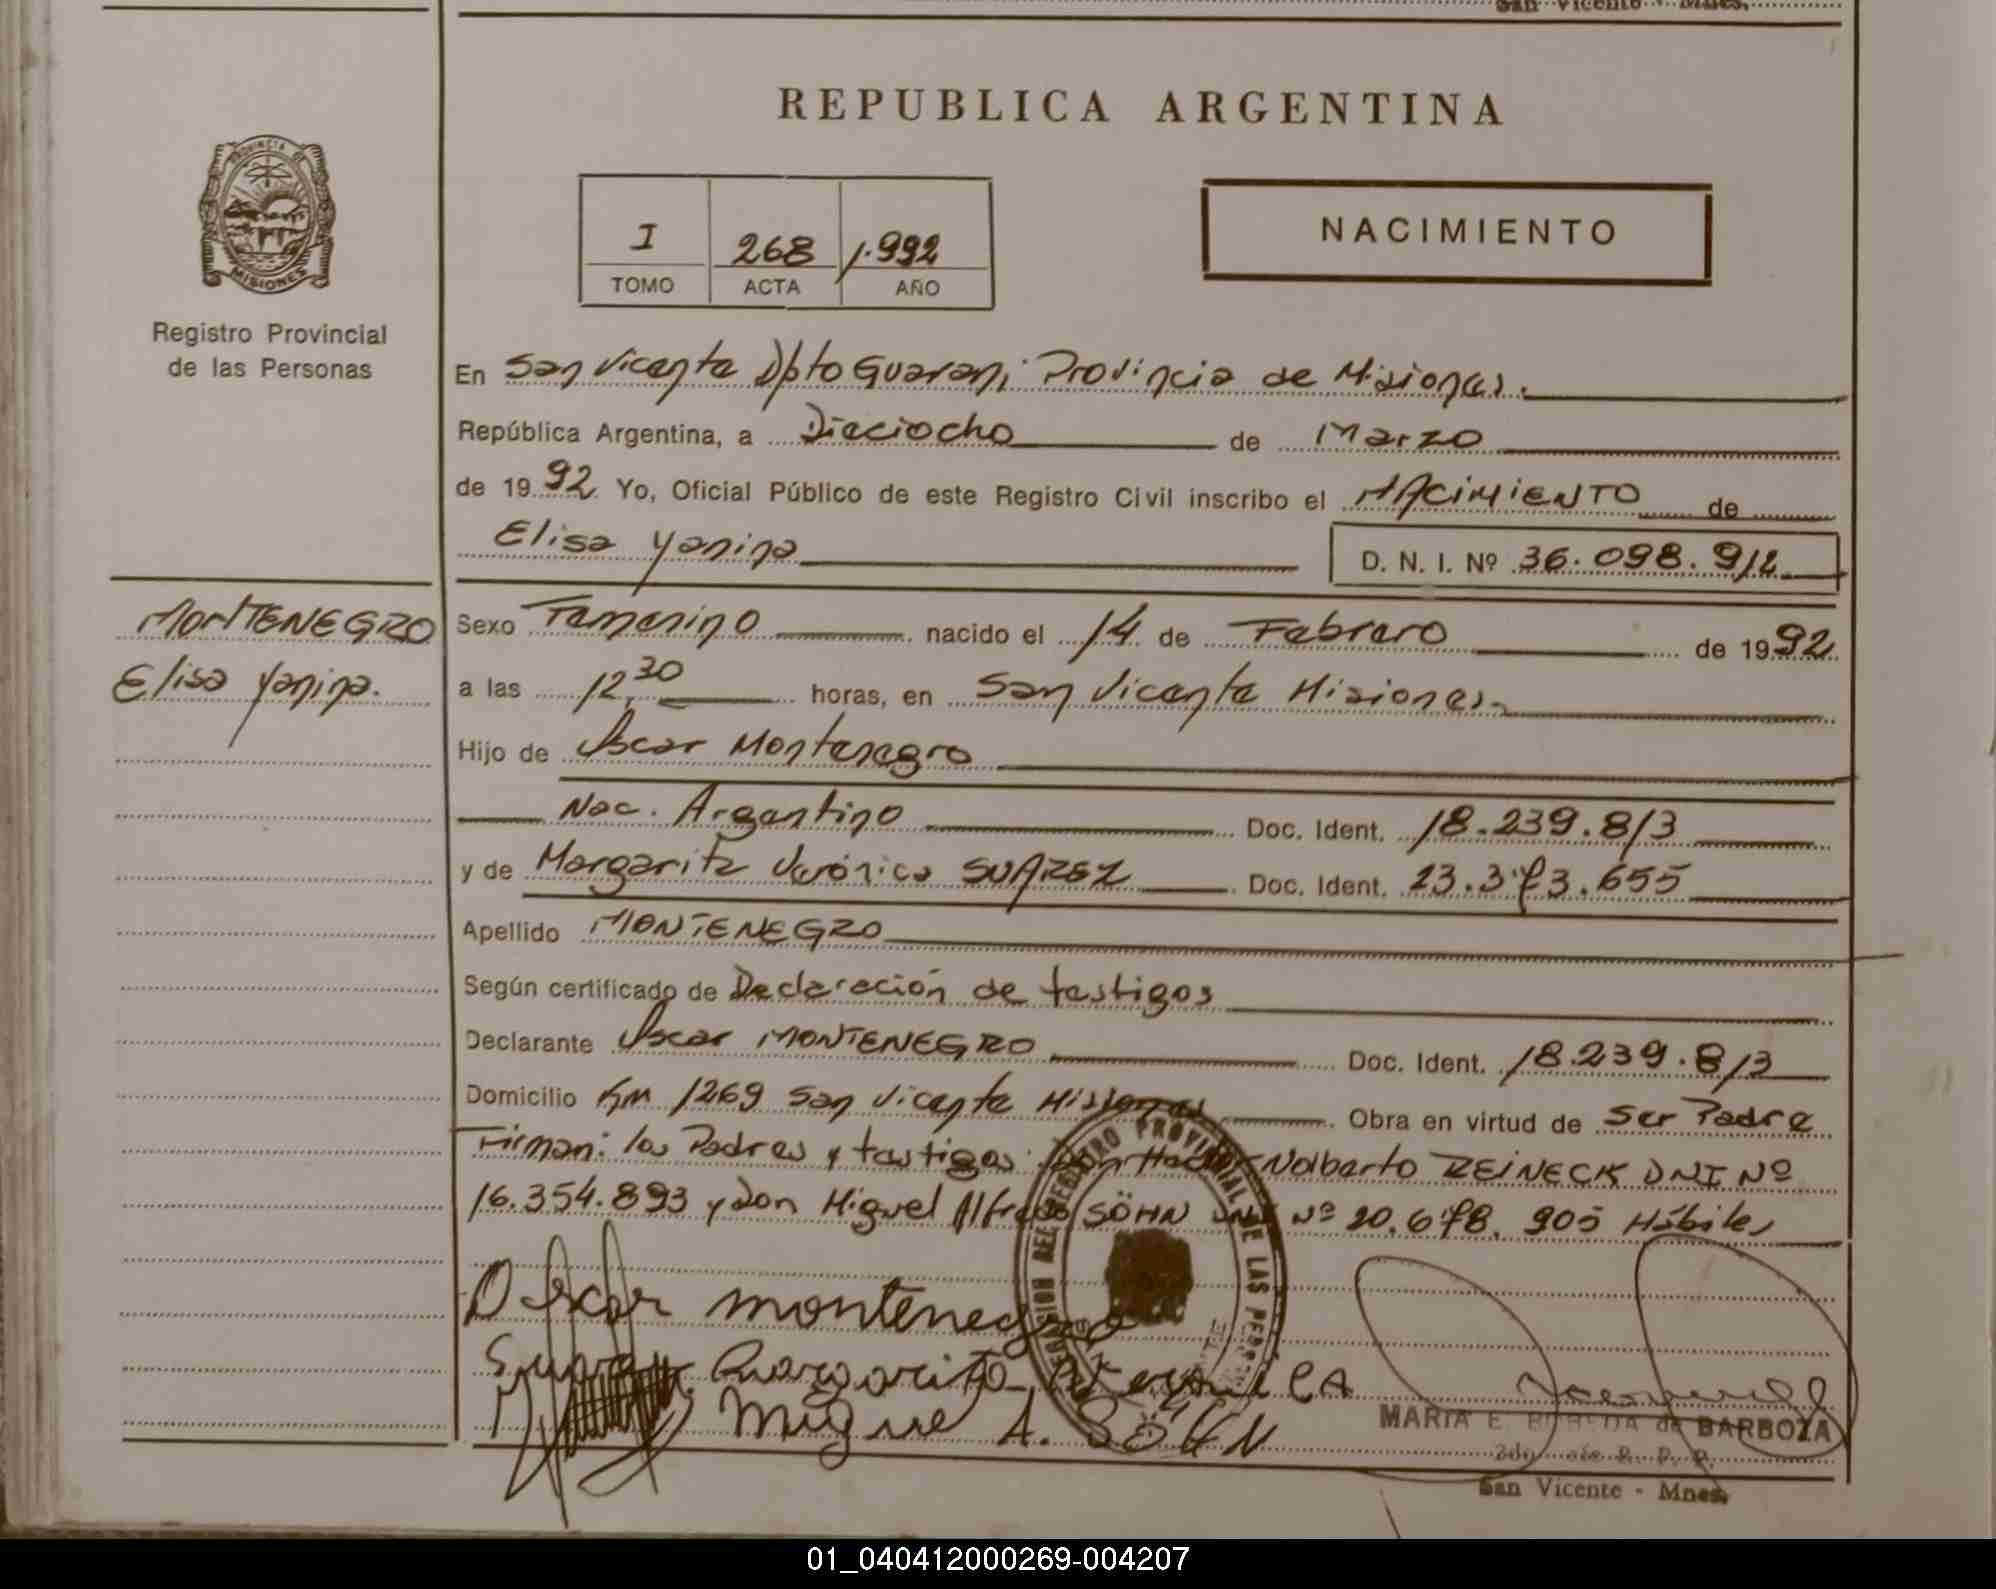 San Vicente - Mnes.
REPUBLICA ARGENTINA
PROVINCIA DE
MISIONES
Registro Provincial
de las Personas
I 268 1.992
TOMO ACTA AÑO
NACIMIENTO
En San Vicente Dpto Guarani Provincia de Misiones.
República Argentina, a Dieciocho de Marzo
de 1992 Yo, Oficial Público de este Registro Civil inscribo el NACIMIENTO de
Elisa Yanina
D. N. I. Nº 36.098.912
MONTENEGRO
Elisa Yanina.
Sexo Femenino nacido el 14 de Febrero de 1992
a las 12,30 horas, en San Vicente Misiones
Hijo de Oscar Montenegro
Nac. Argentino Doc. Ident. 18.239.813
y de Margarita Verónica SUAREZ Doc. Ident. 23.373.655
Apellido MONTENEGRO
Según certificado de Declaración de testigos
Declarante Oscar MONTENEGRO Doc. Ident. 18.239.813
Domicilio Km 1269 San Vicente Misiones Obra en virtud de Ser Padre
Firman: los Padres y testigos Don Nolberto REINECK DNI Nº
16.354.893 y Don Miguel Alfredo SÖHN DNI Nº 20.678.905 Hábiles
REGISTRO PROVINCIAL DE LAS PERSONAS
Oscar montenegro
Suarez Margarita Veronica
Miguel A. SÖHN
MARIA E. de BARBOZA
San Vicente - Mnes.
01_040412000269-004207